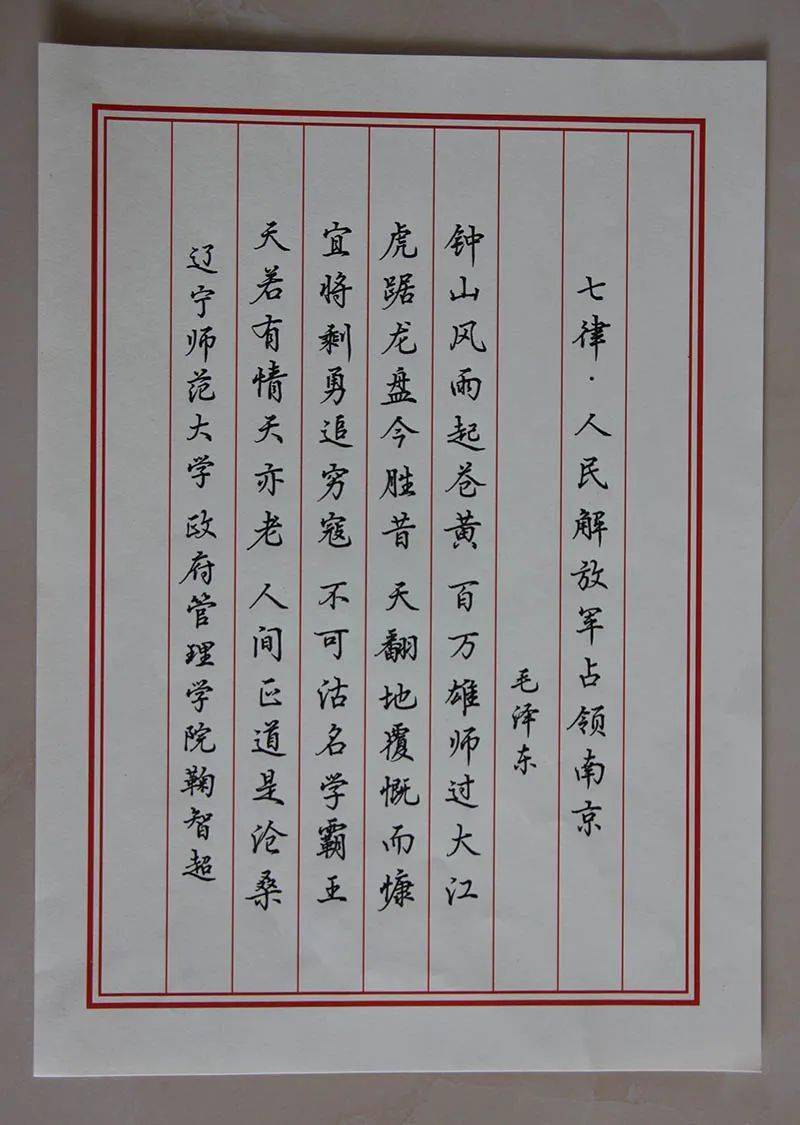 七律·人民解放军占领南京
毛泽东
钟山风雨起苍黄 百万雄师过大江
虎踞龙盘今胜昔 天翻地覆慨而慷
宜将剩勇追穷寇 不可沽名学霸王
天若有情天亦老 人间正道是沧桑
辽宁师范大学 政府管理学院鞠智超